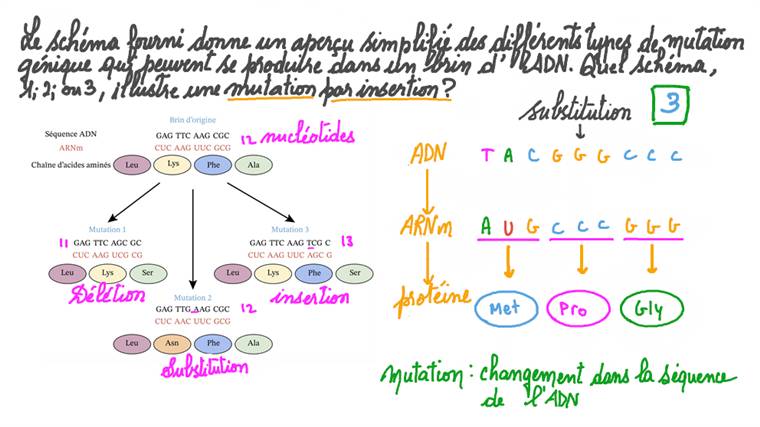 Le schéma fourni donne un aperçu simplifié des différents types de mutation
génique qui peuvent se produire dans un brin d' l'ADN. Quel schéma,
1; 2; ou 3, illustre une mutation par insertion ?
substitution 3
Brin d'origine
Séquence ADN GAG TTC AAG CGC 12 nucléotides
ARNm CUC AAG UUC GCG
Chaîne d'acides aminés Leu Lys Phe Ala
Mutation 1
11 GAG TTC AGC GC
CUC AAG UCG CG
Leu Lys Ser
Délétion
Mutation 3
GAG TTC AAG TCG C 13
CUC AAG UUC AGC G
Leu Lys Phe Ser
insertion
Mutation 2
GAG TTG AAG CGC 12
CUC AAC UUC GCG
Leu Asn Phe Ala
Substitution
ADN T A C G G G C C C
ARNm A U G C C C G G G
protéine Met Pro Gly
Mutation : changement dans la séquence
de l'ADN